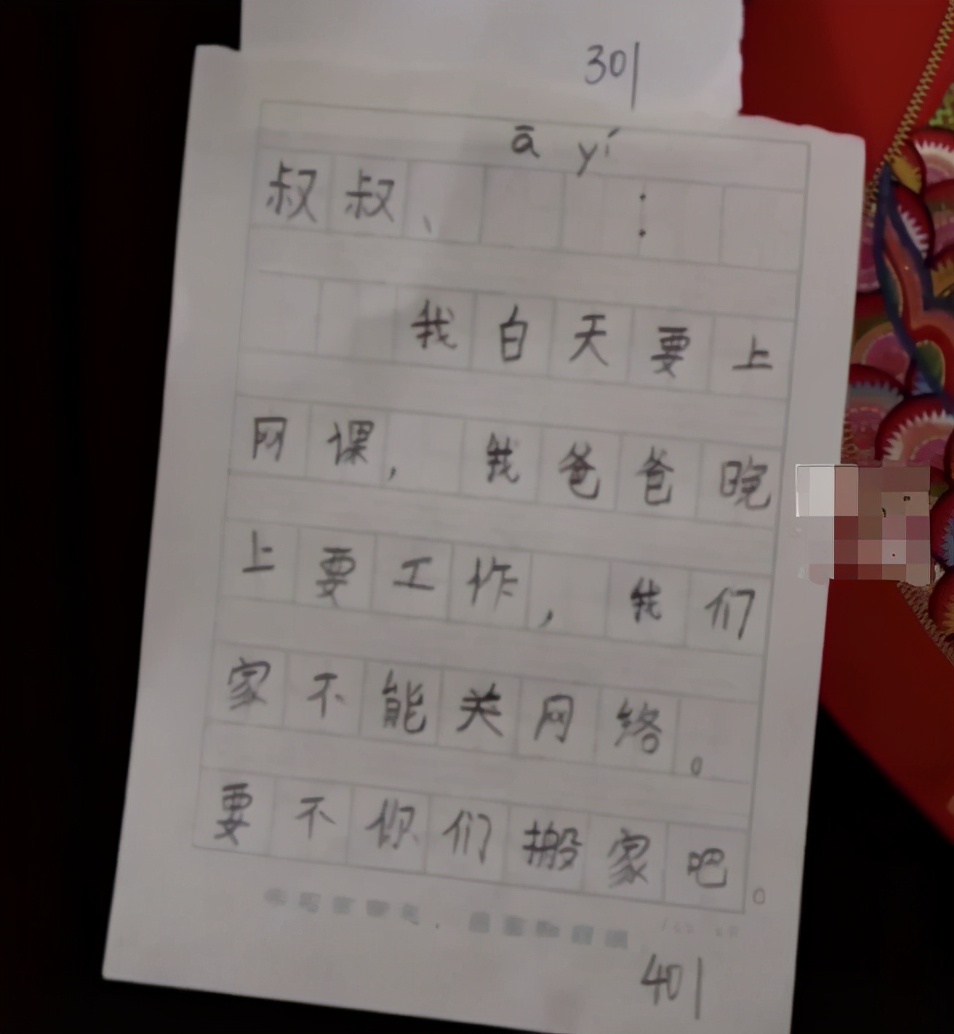 301
ā yí
叔叔、 :
我白天要上
网课，我爸爸晚
上要工作，我们
家不能关网络。
要不你们搬家吧。
401